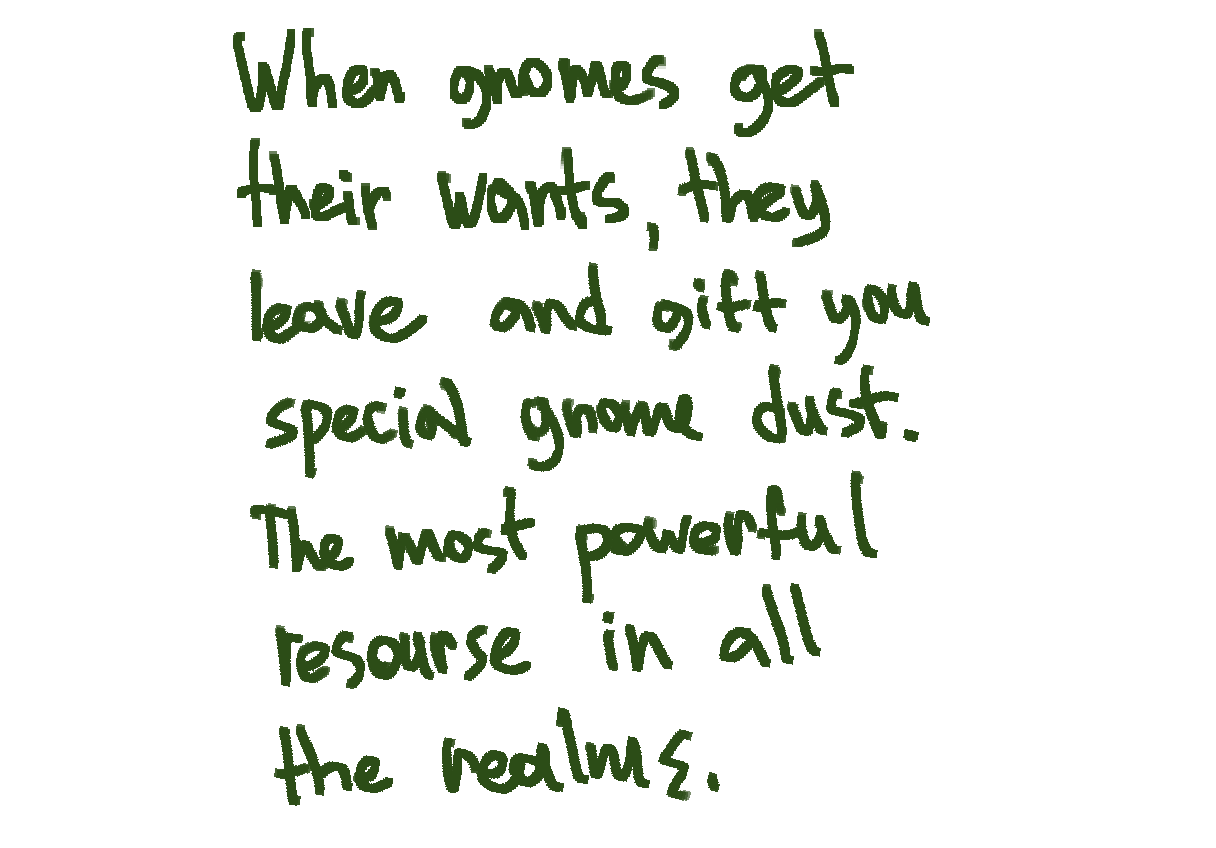 When gnomes get
their wants, they
leave and gift you
special gnome dust.
The most powerful
resourse in all
the realms.